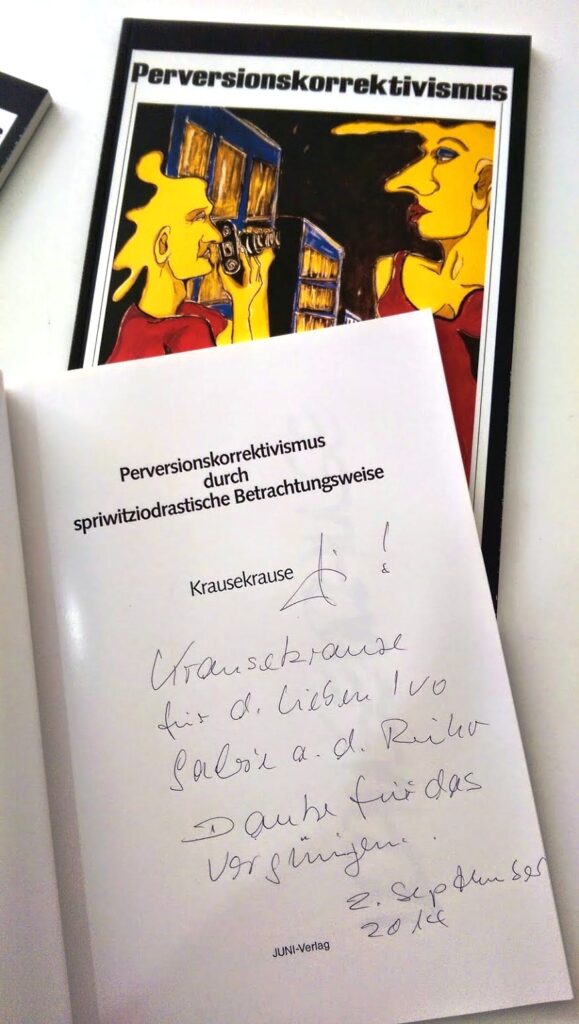 Perversionskorrektivismus
Perversionskorrektivismus
durch
spriwitziodrastische Betrachtungsweise
Krausekrause
!
&
Krausekrause
für d. lieben Ivo
a. d.
Danke für das
Vergnügen.
2. September
2014
JUNI-Verlag